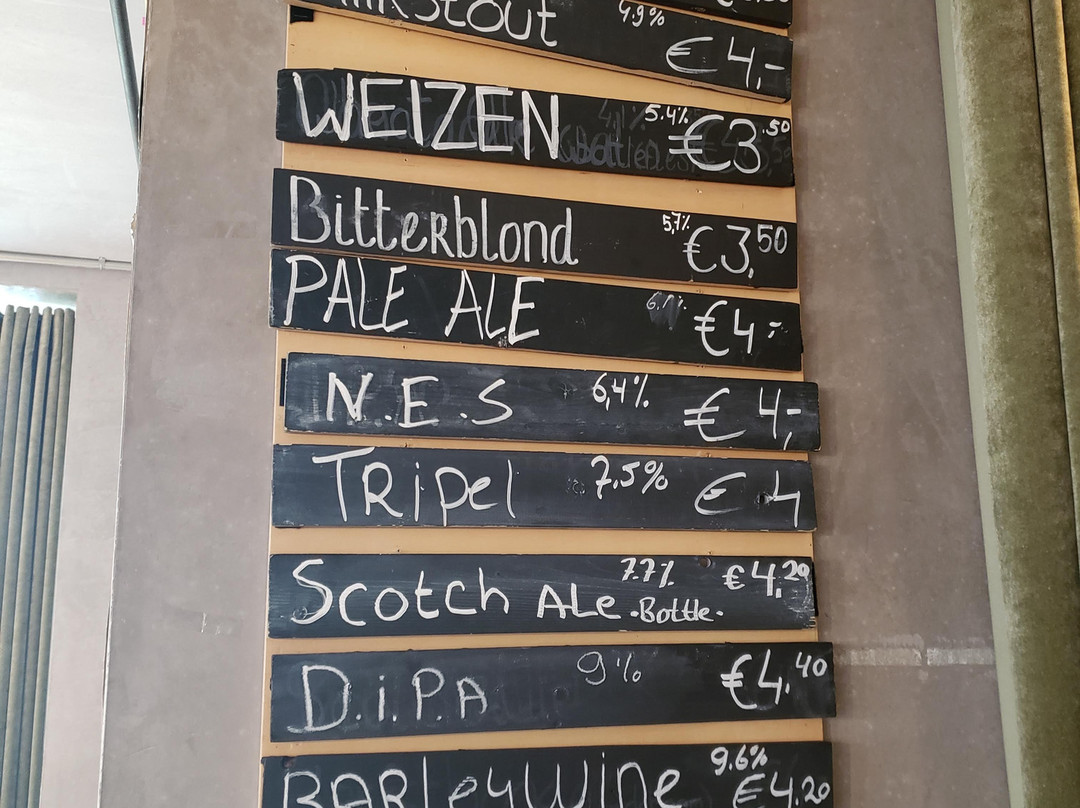 stout 4.9% € 4,-
WEIZEN 5.4% €3.50
Bitterblond 5,7% €3,50
PALE ALE €4,-
N.E.S 6,4% € 4,-
TRipel 7,5% € 4
Scotch ALe -Bottle- 7.7% €4.20
D.i.P.A 9% €4.40
BARleyWine 9.6% €4.20